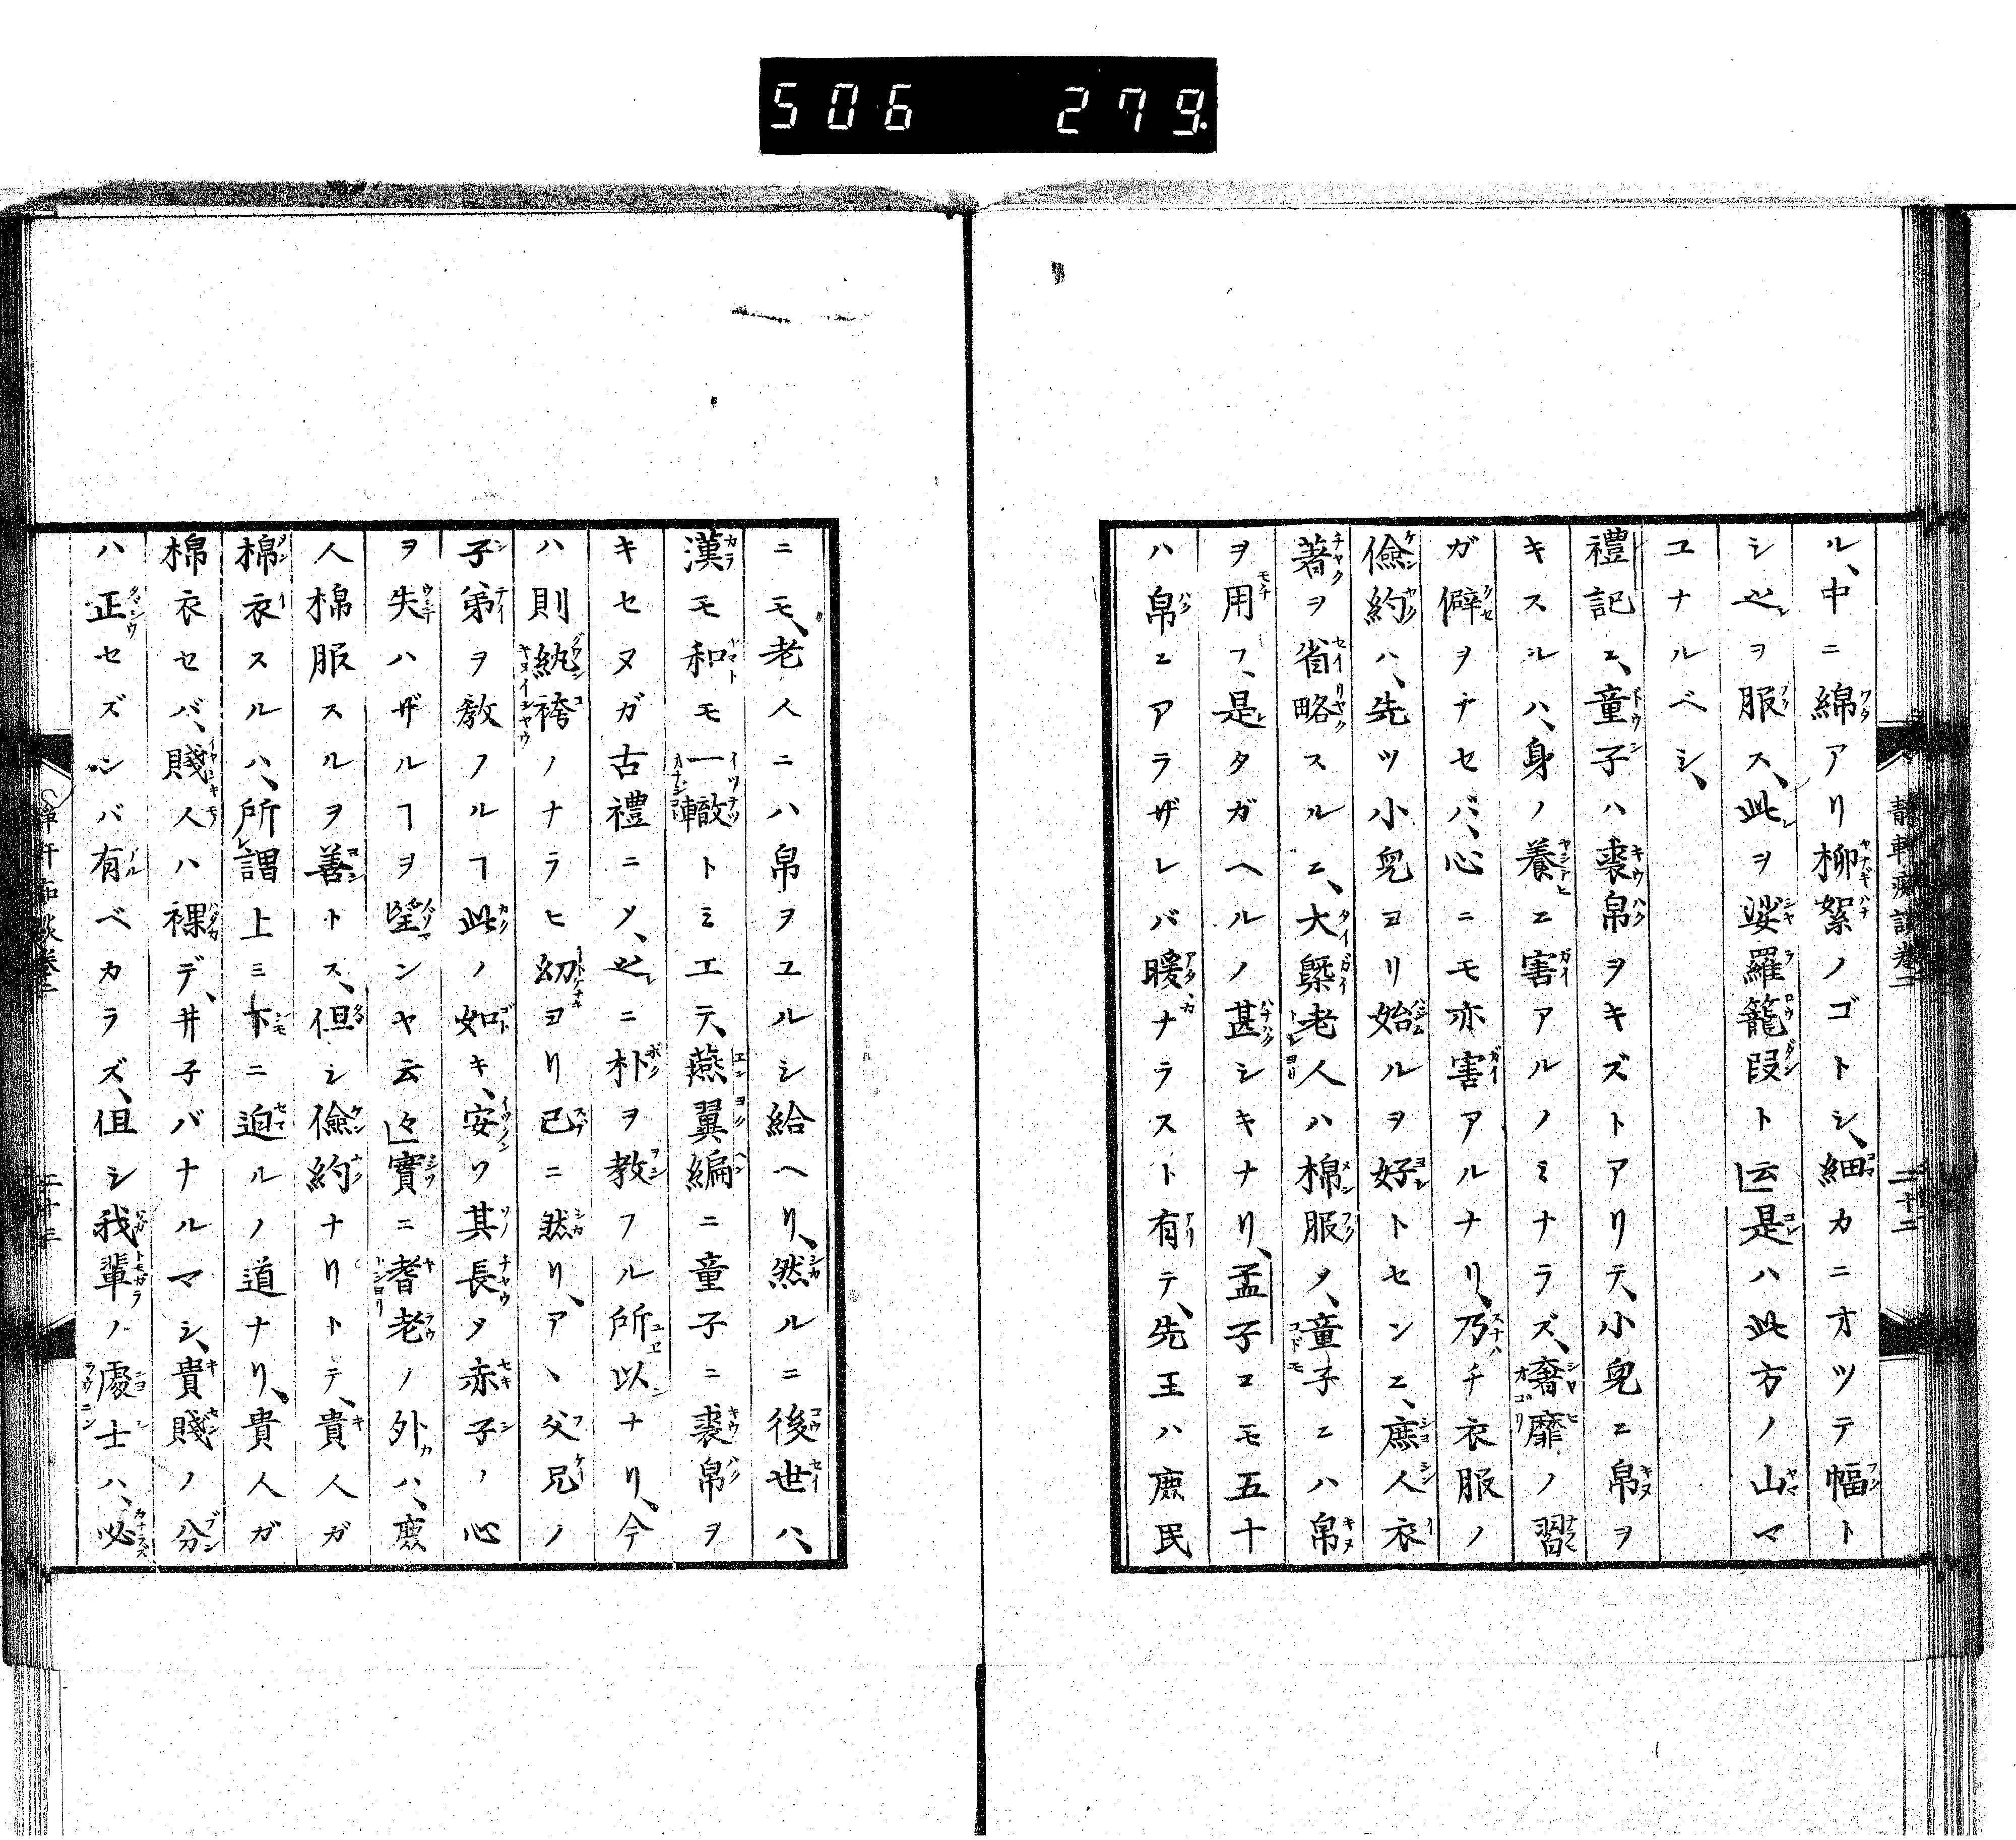 506 279
ル、中ニ綿アリ柳絮ノゴトシ、細カニオツテ幅ト
シ之ヲ服ス、此ヲ娑羅籠段ト云是ハ此方ノ山マ
ユナルベシ、
禮記ニ、童子ハ裘帛ヲキズトアリテ、小兒ニ帛ヲ
キスルハ、身ノ養ニ害アルノミナラズ、奢靡ノ習
ガ僻ヲナセバ、心ニモ亦害アルナリ、乃チ衣服ノ
儉約ハ、先ツ小兒ヨリ始ルヲ好トセンニ、庶人衣
著ヲ省略スルニ、大槩老人ハ棉服メ、童子ニハ帛
ヲ用フ、是タガヘルノ甚シキナリ、孟子ニモ五十
ハ帛ニアラザレバ暖ナラスト有テ、先王ハ庶民
二十二
ニモ、老人ニハ帛ヲユルシ給ヘリ、然ルニ後世ハ、
漢モ和モ一轍トミエテ、燕翼編ニ童子ニ裘帛ヲ
キセヌガ古禮ニメ、之ニ朴ヲ教フル所以ナリ、今
ハ則紈袴ノナラヒ幼ヨリ已ニ然リ、アヽ父兄ノ
子弟ヲ教フルヿ此ノ如キ、安ソ其長メ赤子ノ心
ヲ失ハザルヿヲ望ンヤ云々實ニ耆老ノ外ハ、庶
人棉服スルヲ善トス、但シ儉約ナリトテ、貴人ガ
棉衣スルハ、所謂上ミ下ニ迫ルノ道ナリ、貴人ガ
棉衣セバ、賤人ハ裸デ、井子バナルマシ、貴賤ノ分
ハ正セズンバ有ベカラズ、但シ我輩ノ處士ハ、必
二十三